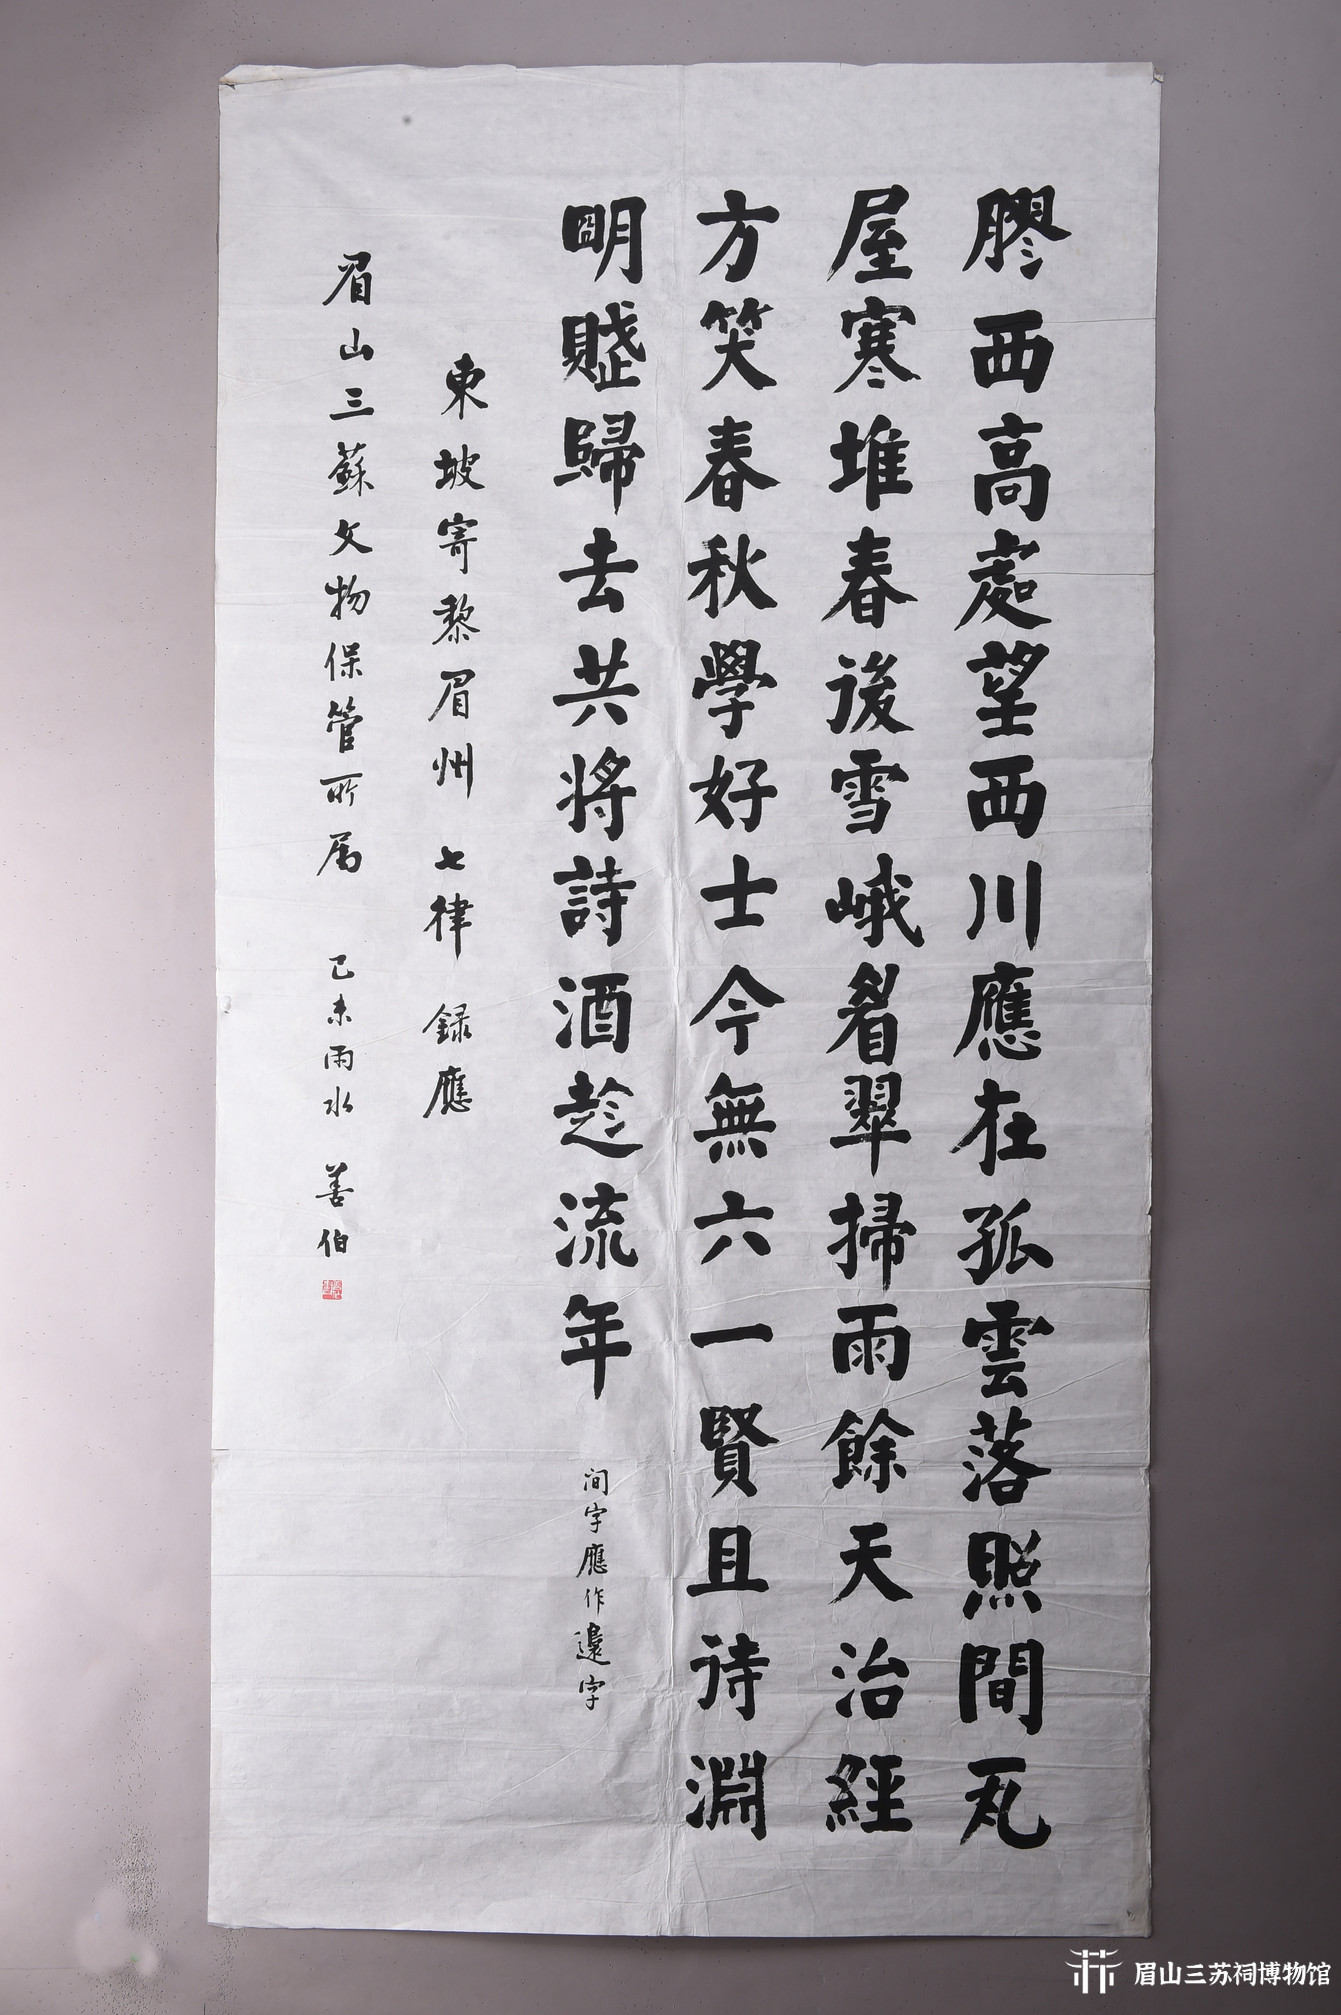 膠西高處望西川應在孤雲落照間瓦
屋寒堆春後雪峨眉翠掃雨餘天治經
方笑春秋學好士今無六一賢且待淵
明賦歸去共將詩酒趁流年
间字應作邊字
東坡寄黎眉州七律 録應
眉山三蘇文物保管所属 己未雨水 善伯
眉山三苏祠博物馆